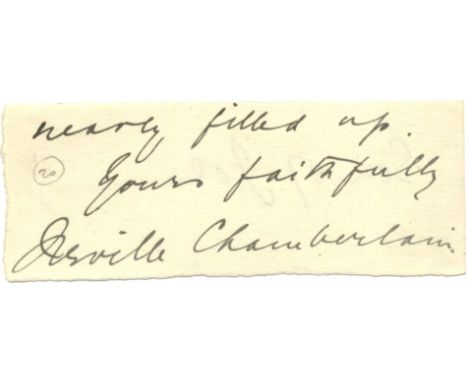 nearly filled up.
20
Yours faithfully
Neville Chamberlain.